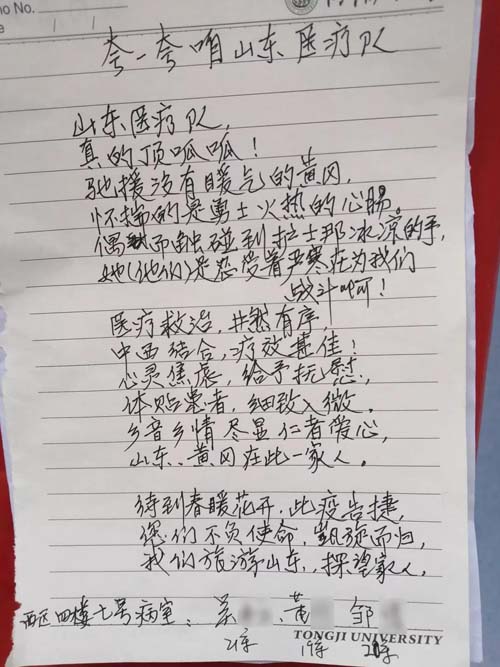 No.
夸一夸咱山东医疗队
山东医疗队,
真的顶呱呱!
驰援没有暖气的黄冈,
怀揣的是勇士火热的心肠。
偶而触碰到护士那冰凉的手,
她(他们)是忍受着严寒在为我们
战斗啊!
医疗救治,井然有序,
中西结合,疗效甚佳!
心灵焦虑,给予抚慰,
体贴患者,细致入微。
乡音乡情尽显仁者爱心,
山东、黄冈在此一家人。
待到春暖花开,此疫告捷,
您们不负使命,凯旋而归,
我们旅游山东,探望家人。
西区四楼七号病室: 吴 、黄 邹
21床 19床 20床
TONGJI UNIVERSITY